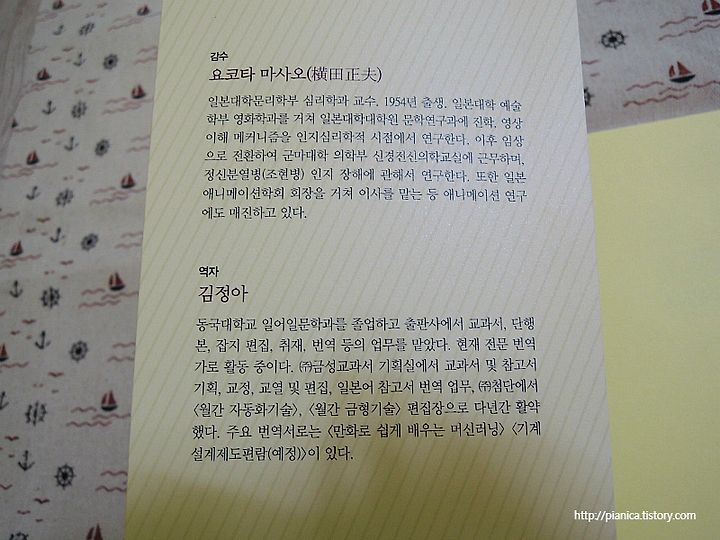 감수
요코타 마사오(橫田正夫)
일본대학문리학부 심리학과 교수. 1954년 출생. 일본대학 예술
학부 영화학과를 거쳐 일본대학대학원 문학연구과에 진학, 영상
이해 메커니즘을 인지심리학적 시점에서 연구한다. 이후 임상
으로 전환하여 군마대학 의학부 신경전신의학교실에 근무하며,
정신분열병(조현병) 인지 장해에 관해서 연구한다. 또한 일본
애니메이션학회 회장을 거쳐 이사를 맡는 등 애니메이션 연구
에도 매진하고 있다.
역자
김정아
동국대학교 일어일문학과를 졸업하고 출판사에서 교과서, 단행
본, 잡지 편집, 취재, 번역 등의 업무를 맡았다. 현재 전문 번역
가로 활동 중이다. ㈜금성교과서 기획실에서 교과서 및 참고서
기획, 교정, 교열 및 편집, 일본어 참고서 번역 업무, ㈜첨단에서
〈월간 자동화기술〉, 〈월간 금형기술〉 편집장으로 다년간 활약
했다. 주요 번역서로는 〈만화로 쉽게 배우는 머신러닝〉 〈기계
설계제도편람(예정)〉이 있다.
http://pianica.tistory.com